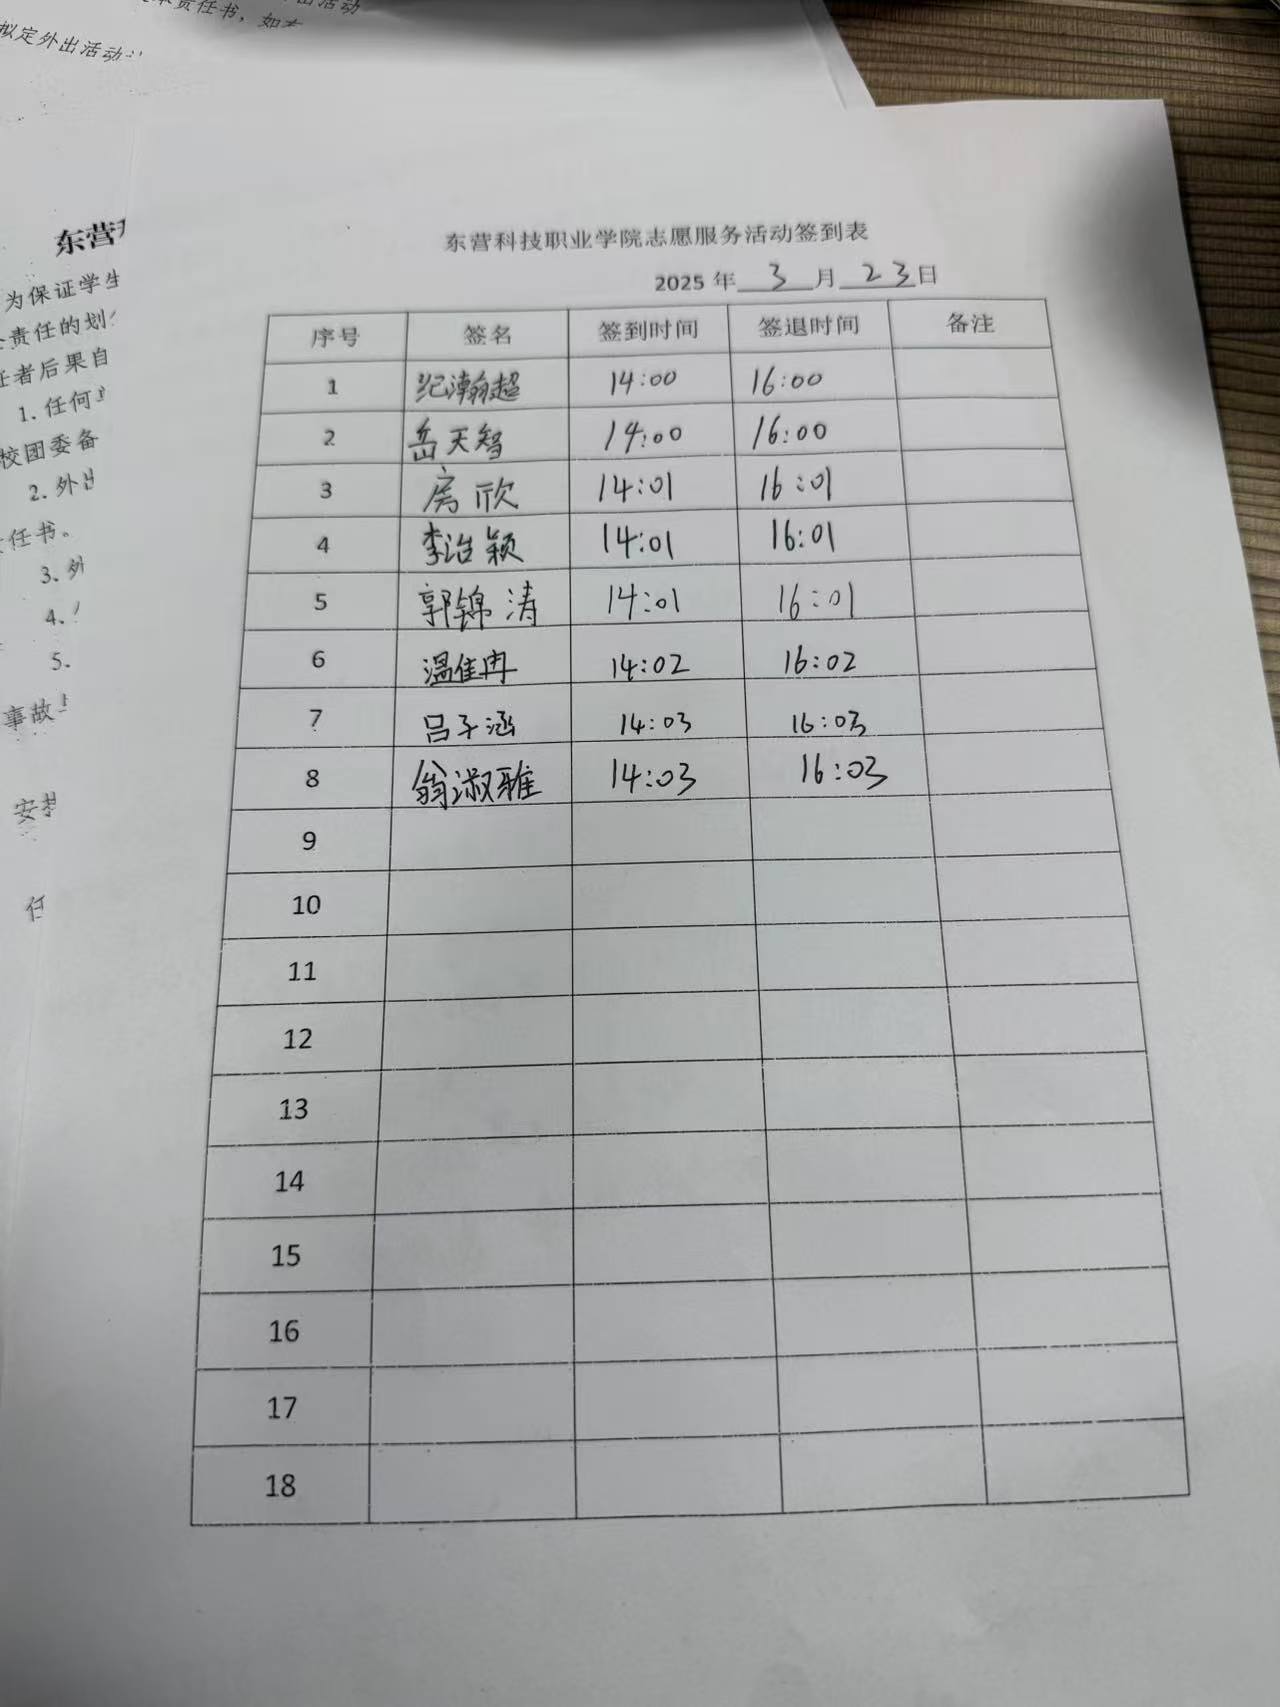 拟定外出活动
东营
为保证学生
责任的划
任者后果自
1.任何
校团委备
2.外出
任书。
3.外
4.
5.
事故
安
任
东营科技职业学院志愿服务活动签到表
2025 年 3 月 23 日
序号 签名 签到时间 签退时间 备注
1 纪瀚超 14:00 16:00
2 岳天智 14:00 16:00
3 房欣 14:01 16:01
4 李治颖 14:01 16:01
5 郭锦涛 14:01 16:01
6 温佳冉 14:02 16:02
7 吕子涵 14:03 16:03
8 翁淑雅 14:03 16:03
9
10
11
12
13
14
15
16
17
18